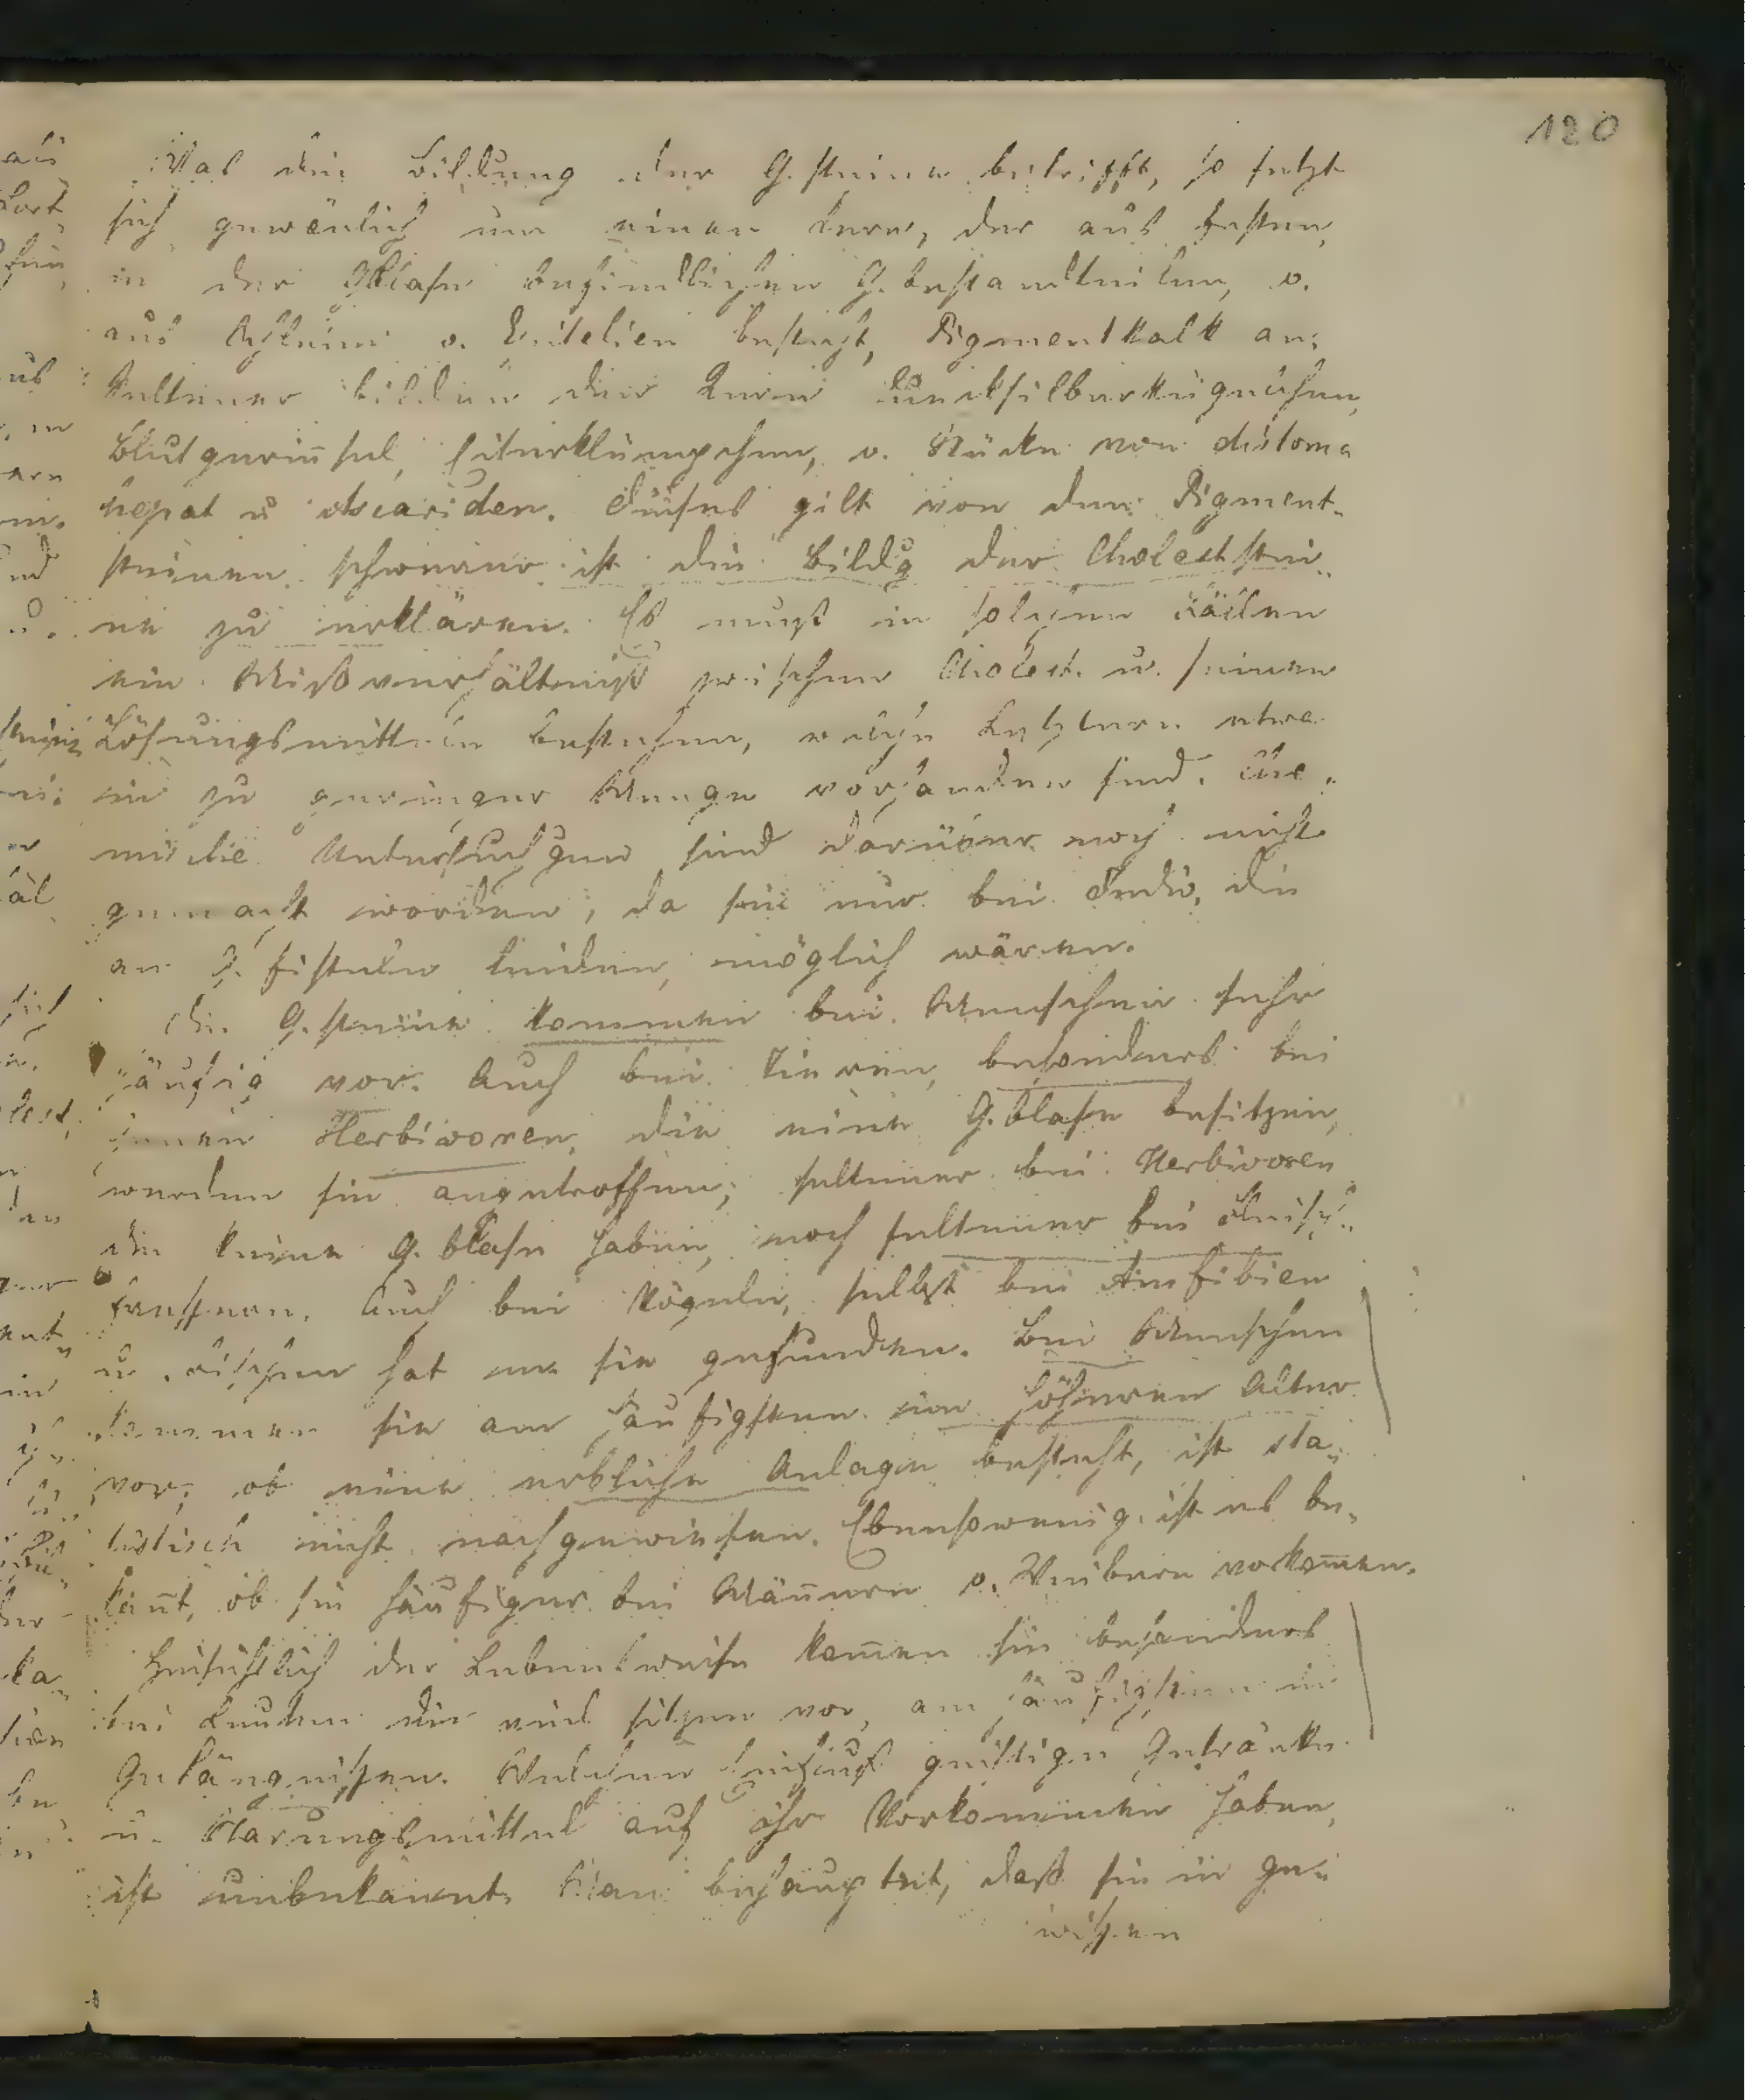 120
Was die Bildung der G.steine betrifft, so setzt
sich gewönlich um einen Kern, der aus festen,
in der Gblase befindlichen G.bestandteilen, o.
aus Schleim o. Epitelien besteht, Pigmentkalk an;
seltener bilden den Kern Quecksilberkügelchen,
Blutgerin̄sel, Eiterklümpchen, o. Stücke von distoma
hepat u Ascariden. Dieses gilt von den Pigment-
steinen. Schwerer ist die Bildg der CholestStei-
ne zu erklären. Es muß in solchen Fällen
ein Mißverhältniß zwischen Cholest. u. seinen
Lösungsmitteln bestehen, welche Letztern etwa
in zu geringer Menge vorhanden sind. Che-
mische Untersuchgen sind darüber noch nicht
gemacht worden, da sie nur bei Indiv. die
an G.fisteln leiden, möglich wären.
Die G.steine kommen bei Menschen sehr
häufig vor. Auch bei Tieren, besonders bei
jenen Herbivoren, die eine G.blase besitzen,
werden sie angetroffen; seltener bei Herbivoren
die keine G.blase haben, noch seltener bei Fleisch-
fressern. Auch bei Vögeln, selbst bei Amfibien
u. Fischen hat man sie gefunden. Bei Menschen
kommen sie am häufigsten im höheren Alter
vor; ob eine erbliche Anlage besteht, ist sta-
tistisch nicht nachgewiesen. Ebensowenig ist es be-
kan̄t, ob sie häufiger bei Män̄ern o. Weibern vorkom̄en.
Hinsichtlich der Lebensweise kom̄en sie besonders
bei Leuten die viel sitzen vor, am häufigsten in
Gefängnissen. Welchen Einfluß geistige Getränke
u. Narungsmittel auf ihr Vorkommen haben,
ist unbekannt. Man behauptet, daß sie in ge-
wissen